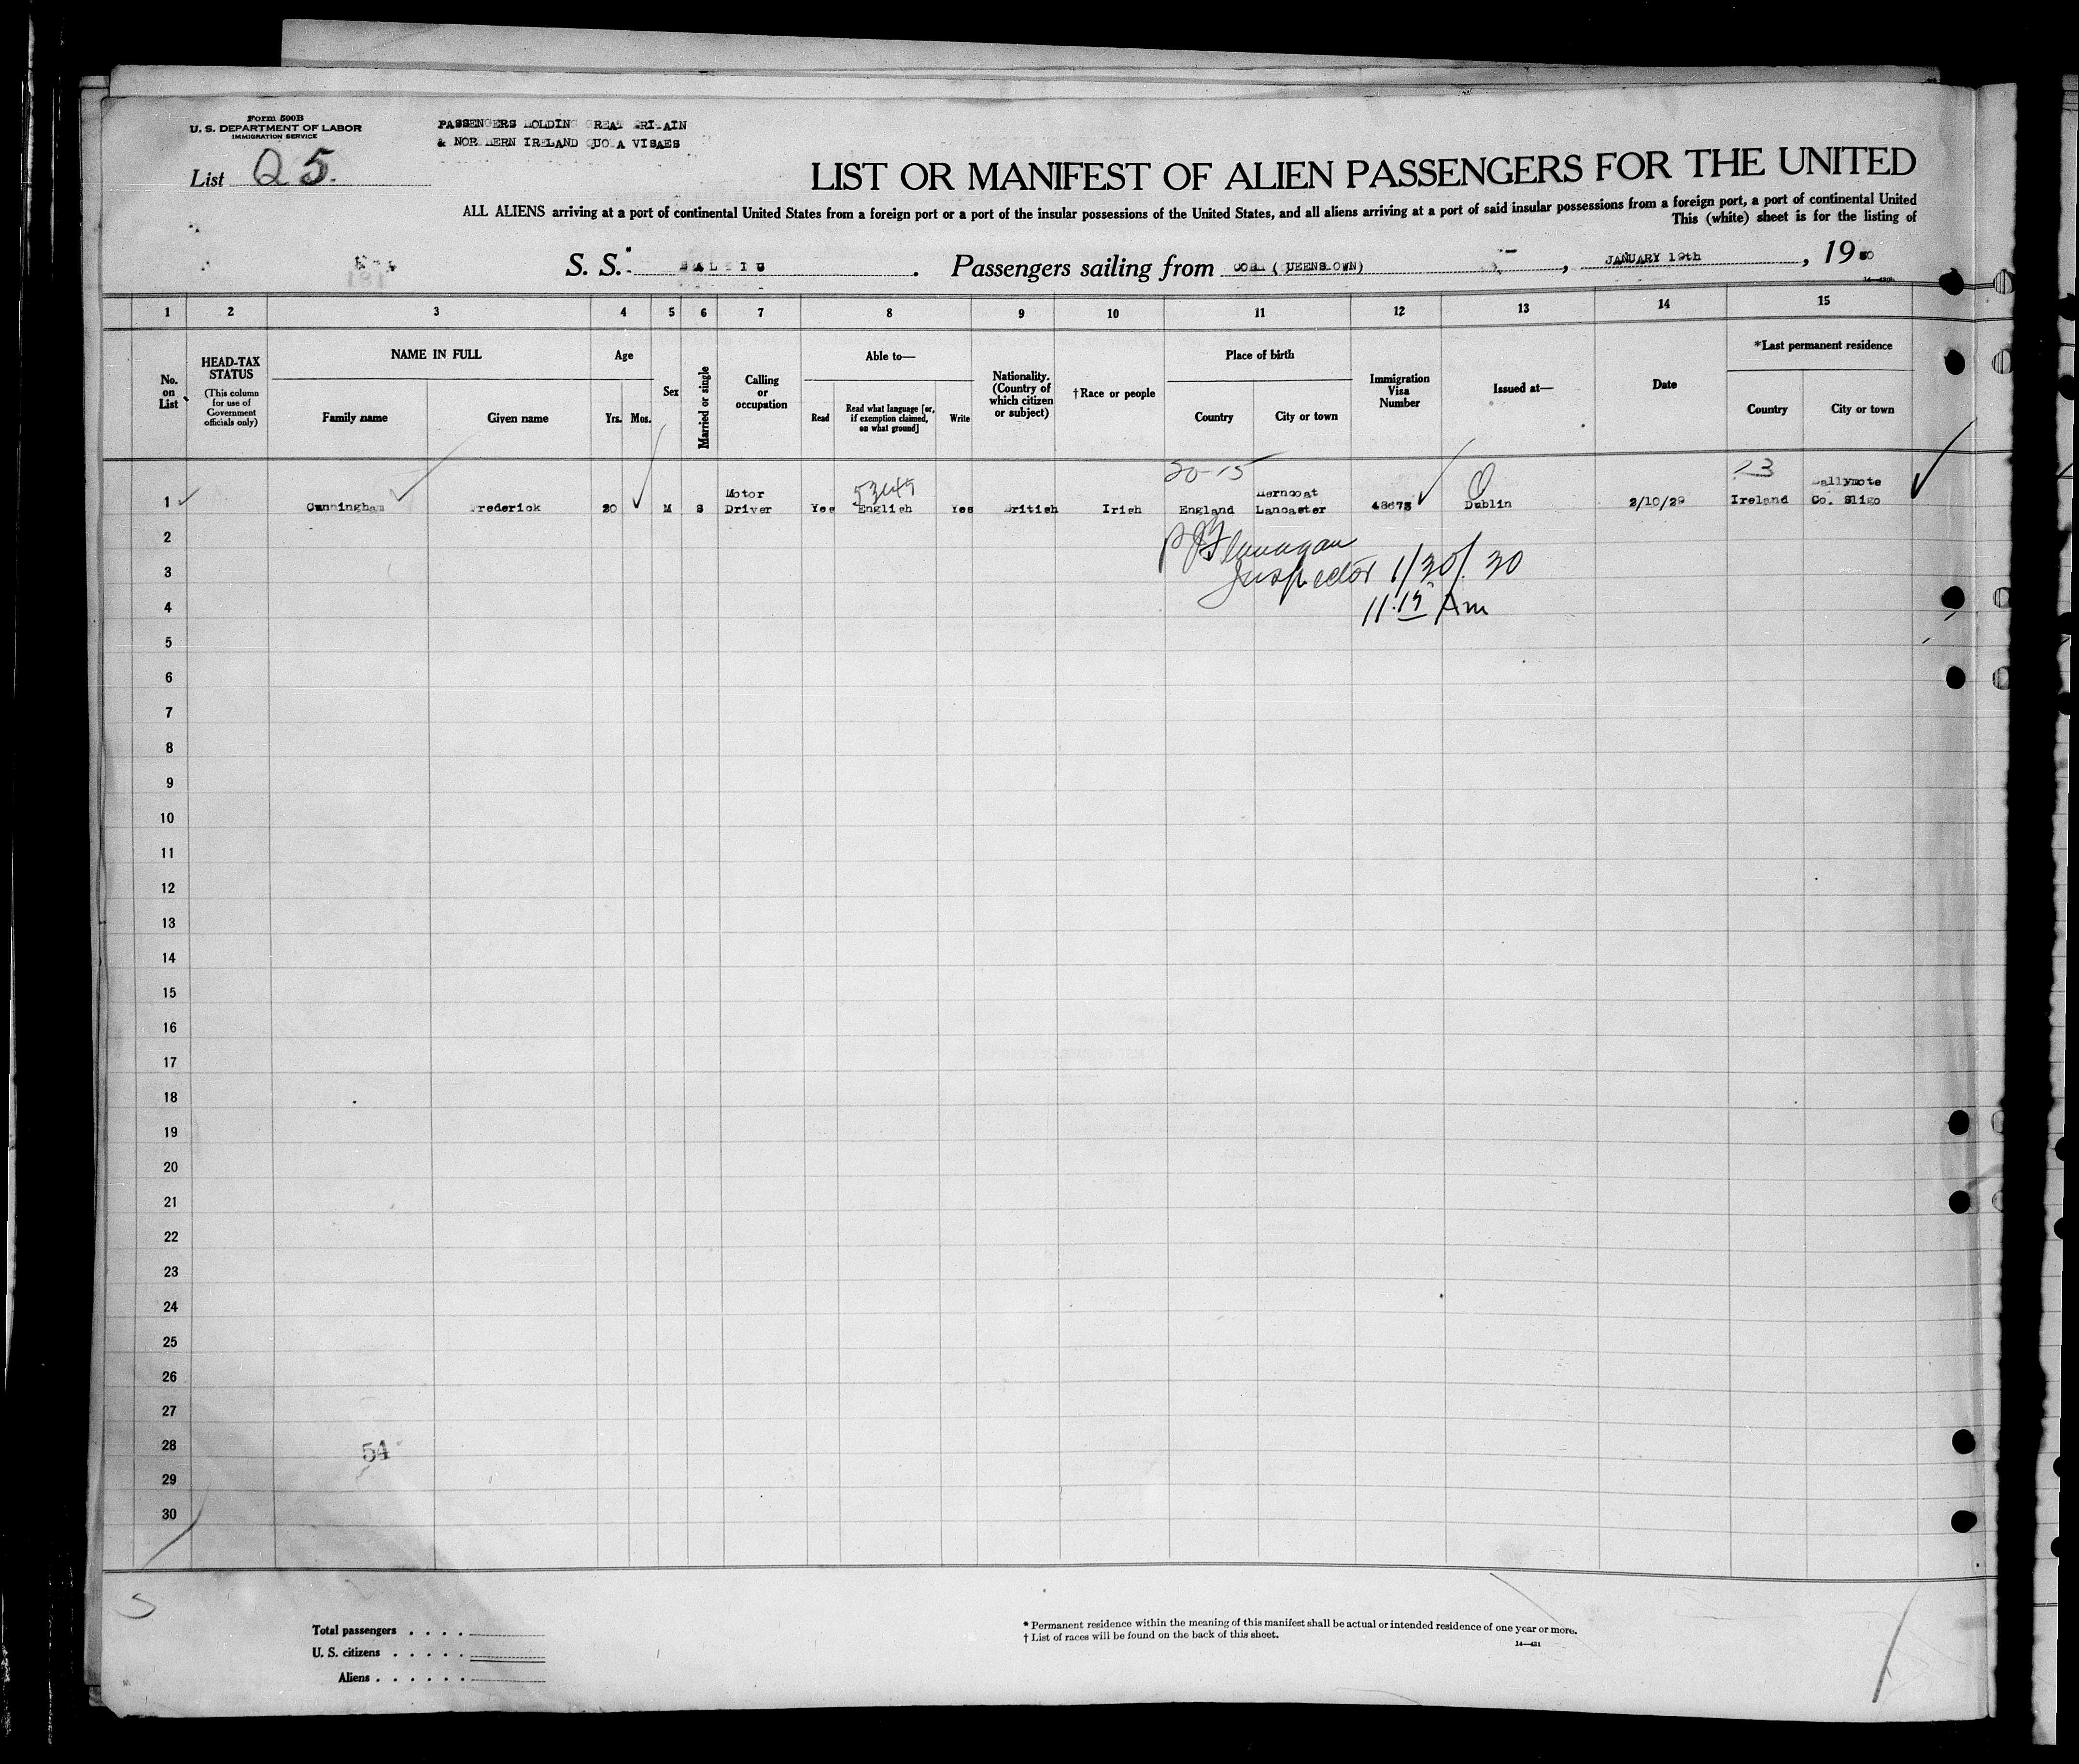 Form 500B
U. S. DEPARTMENT OF LABOR
IMMIGRATION SERVICE
List Q 5.
PASSENGERS HOLDING GREAT BRITAIN
& NORTHERN IRELAND QUOTA VISAES
LIST OR MANIFEST OF ALIEN PASSENGERS FOR THE UNITED
ALL ALIENS arriving at a port of continental United States from a foreign port or a port of the insular possessions of the United States, and all aliens arriving at a port of said insular possessions from a foreign port, a port of continental United
This (white) sheet is for the listing of
S. S. BALTIC . Passengers sailing from COBH (QUEENSTOWN) , JANUARY 19th , 1930
1 2 3 4 5 6 7 8 9 10 11 12 13 14 15
No. on List
HEAD-TAX STATUS
(This column for use of Government officials only)
NAME IN FULL
Family name
Given name
Age
Yrs. Mos.
Sex
Married or single
Calling or occupation
Able to—
Read
Read what language [or, if exemption claimed, on what ground]
Write
Nationality. (Country of which citizen or subject)
†Race or people
Place of birth
Country
City or town
Immigration Visa Number
Issued at—
Date
*Last permanent residence
Country
City or town
20-15
1 Cunningham Frederick 30 M S Motor Driver Yes English Yes British Irish England Lancaster Dublin 2/10/29 Ireland Ballymote Co. Sligo
2
P J Flanagan
3
Inspector 1/30/30
4
11.15 Am
5
6
7
8
9
10
11
12
13
14
15
16
17
18
19
20
21
22
23
24
25
26
27
28
54
29
30
Total passengers . . . .
U. S. citizens . . . . .
Aliens . . . . . .
* Permanent residence within the meaning of this manifest shall be actual or intended residence of one year or more.
† List of races will be found on the back of this sheet.
14—421